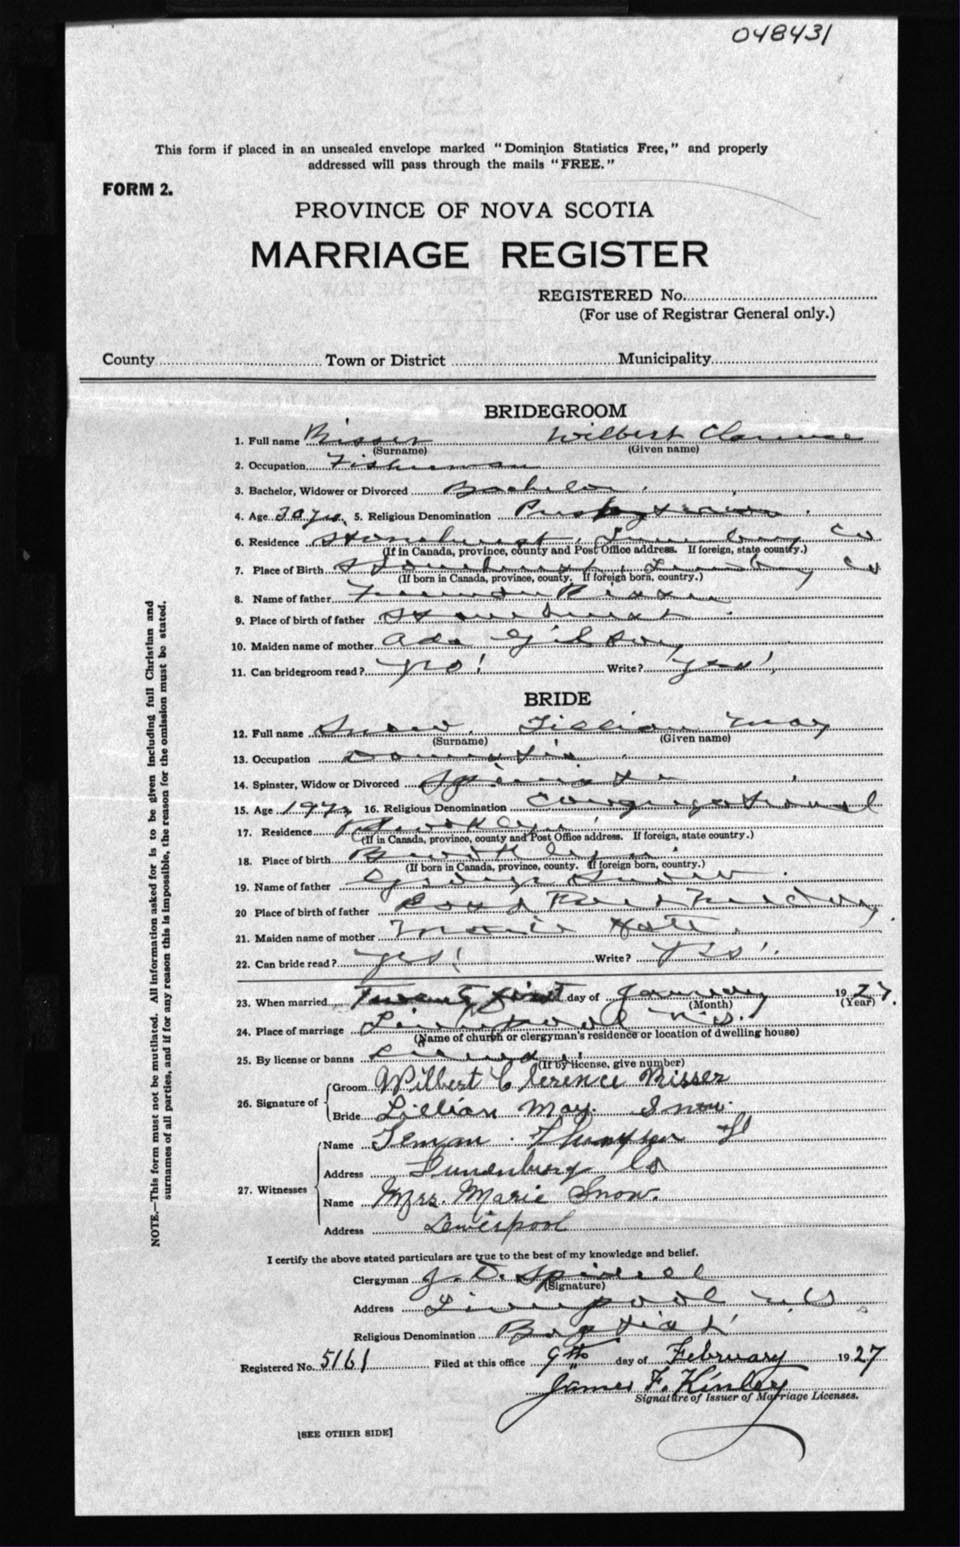 048431
This form if placed in an unsealed envelope marked "Dominion Statistics Free," and properly
addressed will pass through the mails "FREE."
FORM 2.
PROVINCE OF NOVA SCOTIA
MARRIAGE REGISTER
REGISTERED No.
(For use of Registrar General only.)
County Town or District Municipality
BRIDEGROOM
1. Full name Risser Wilbert Clarence
(Surname) (Given name)
2. Occupation Fisherman
3. Bachelor, Widower or Divorced Bachelor
4. Age 5. Religious Denomination Presbyterian
6. Residence Stonehurst, Lunenburg Co
(If in Canada, province, county and Post Office address. If foreign, state country.)
7. Place of Birth Stonehurst, Lunenburg Co
(If born in Canada, province, county. If foreign born, country.)
8. Name of father Risser
9. Place of birth of father Stonehurst
10. Maiden name of mother Ada Gibson
11. Can bridegroom read? Write? Yes
BRIDE
12. Full name Snow, Lillian May
(Surname) (Given name)
13. Occupation Domestic
14. Spinster, Widow or Divorced Spinster
15. Age 19 16. Religious Denomination Congregational
17. Residence Brooklyn
(If in Canada, province, county and Post Office address. If foreign, state country.)
18. Place of birth Brooklyn
(If born in Canada, province, county. If foreign born, country.)
19. Name of father George Snow
20 Place of birth of father
21. Maiden name of mother Marie
22. Can bride read? Yes! Write? Yes
23. When married Twenty first day of January 1927.
(Month) (Year)
24. Place of marriage Liverpool N.S.
(Name of church or clergyman's residence or location of dwelling house)
25. By license or banns License
(If by license, give number)
26. Signature of
Groom Wilbert Clerence Risser
Bride Lillian May. Snow.
27. Witnesses
Name
Address Lunenburg Co
Name Mrs. Marie Snow.
Address Lewerpool
I certify the above stated particulars are true to the best of my knowledge and belief.
Clergyman J. D. Spidell
(Signature)
Address Liverpool N.S.
Religious Denomination Baptist
Registered No. 5161 Filed at this office 9th day of February 1927
James F. Kinley
Signature of Issuer of Marriage Licenses.
[SEE OTHER SIDE]
NOTE.—This form must not be mutilated. All information asked for is to be given including full Christian and
surnames of all parties, and if for any reason this is impossible, the reason for the omission must be stated.